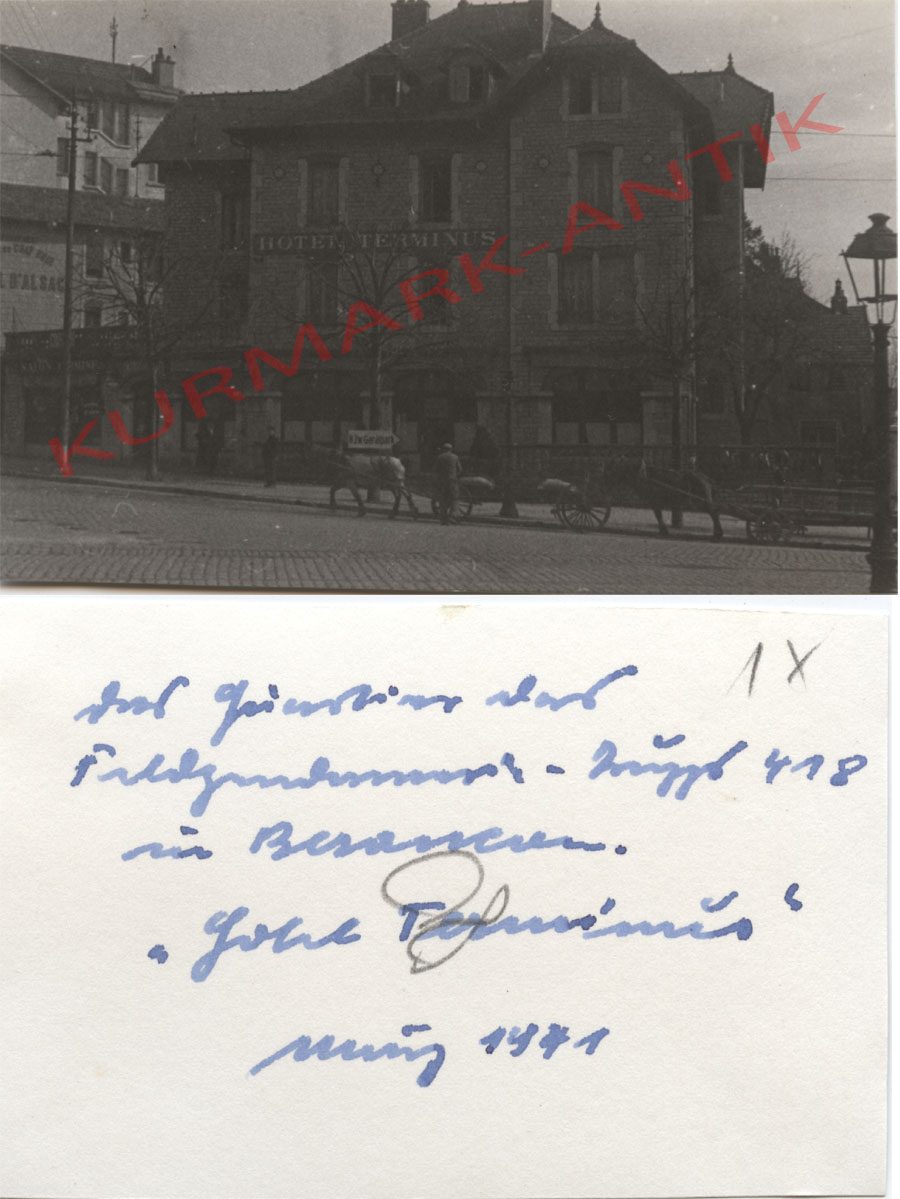 HOTEL TERMINUS
L D'ALSAC
KURMARK-ANTIK
1 X
das Quartier des
Feldgendarmerie-Trupps 418
in Besancon.
"Hotel Terminus"
März 1941